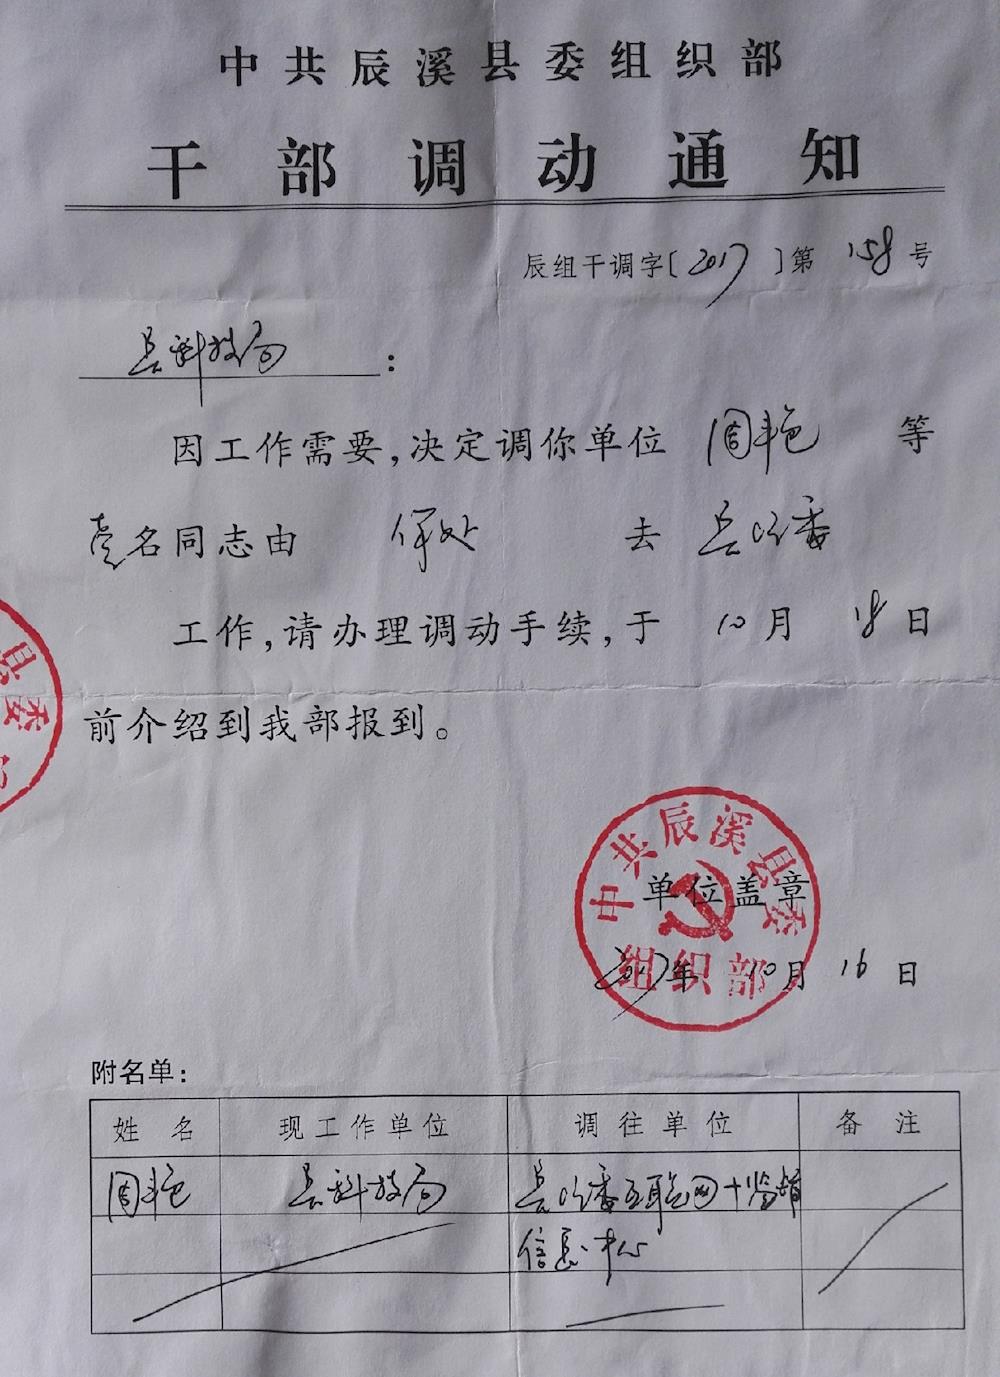 中共辰溪县委组织部
干部调动通知
辰组干调字[2017]第158号
县科技局:
因工作需要,决定调你单位 周艳 等
壹名同志由 保处 去 县纪委
工作,请办理调动手续,于 10月 18日
前介绍到我部报到。
县委
中共辰溪县委
单位盖章
组织部
2017年 10月 16日
附名单:
姓名 现工作单位 调往单位 备注
周艳 县科技局 县纪委互联网+监督
信息中心